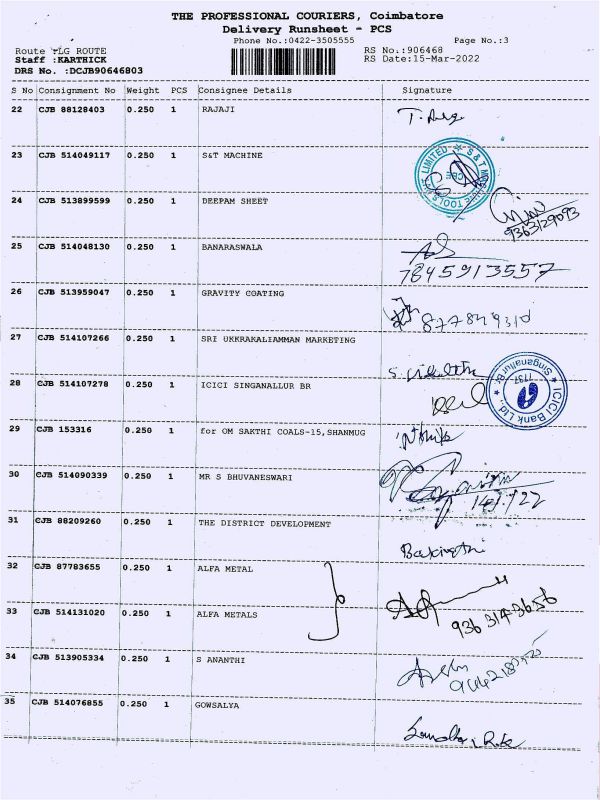 THE PROFESSIONAL COURIERS, Coimbatore
Delivery Runsheet - PCS
Phone No.:0422-3505555 Page No.:3
Route PLG ROUTE RS No.:906468
Staff :KARTHICK RS Date:15-Mar-2022
DRS No. :DCJB90646803
S No Consignment No Weight PCS Consignee Details Signature
22 CJB 88128403 0.250 1 RAJAJI
23 CJB 514049117 0.250 1 S&T MACHINE
24 CJB 513899599 0.250 1 DEEPAM SHEET
9363129093
25 CJB 514048130 0.250 1 BANARASWALA
7845913557
26 CJB 513959047 0.250 1 GRAVITY COATING
27 CJB 514107266 0.250 1 SRI UKKRAKALIAMMAN MARKETING
28 CJB 514107278 0.250 1 ICICI SINGANALLUR BR
ICICI Bank Ltd., Singanallur Br.
29 CJB 153316 0.250 1 for OM SAKTHI COALS-15,SHANMUG
30 CJB 514090339 0.250 1 MR S BHUVANESWARI
31 CJB 88209260 0.250 1 THE DISTRICT DEVELOPMENT
32 CJB 87783655 0.250 1 ALFA METAL
33 CJB 514131020 0.250 1 ALFA METALS
34 CJB 513905334 0.250 1 S ANANTHI
35 CJB 514076855 0.250 1 GOWSALYA